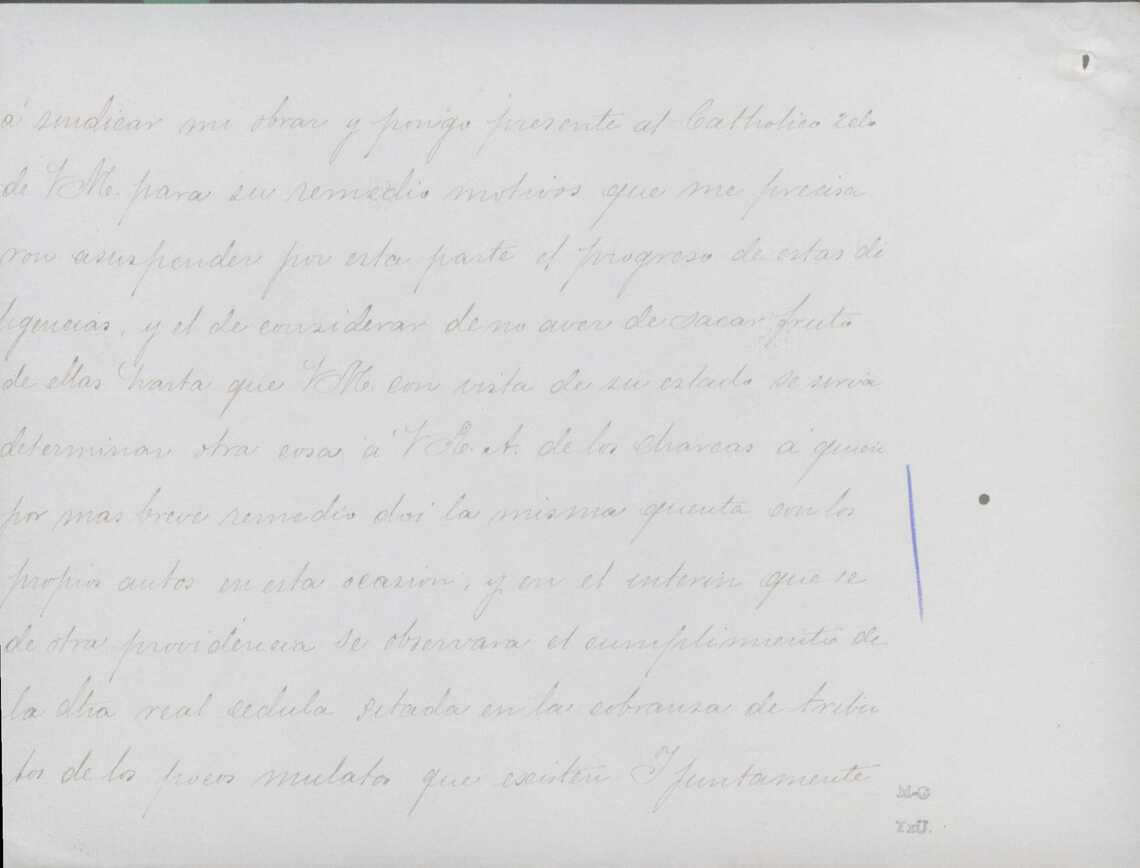 á sindicar mi obrar y pongo presente al Catholico zelo
de VM. para su remedio motivos que me precisa
ron asuspender por esta parte el progreso de estas di
ligencias, y el de considerar de no aver de sacar fruto
de ellas hasta que VM. con vista de su estado se sirva
determinar otra cosa á V R. A. de los charcas á quien
por mas breve remedio doi la misma quenta con los
propios autos en esta ocasion, y en el interin que se
de otra providencia se observara el cumplimiento de
la dha real cedula sitada en la cobransa de tribu
tos de los pocos mulatos que existen Y juntamente
M-G